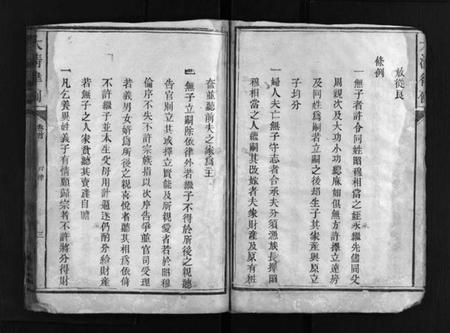 放從良
條例
一無子者許令同姓昭穆相當之姪承繼先儘同父
周親次及大功小功緦麻如俱無方許擇立遠房
及同姓為嗣若立嗣之後却生子其家產與原立
子均分
一婦人夫亡無子守志者合承夫分須憑族長擇昭
穆相當之人繼嗣其改嫁者夫家財產及原有粧
奩並聽前夫之家為主
一無子立嗣除依律外若繼子不得於所後之親聽
告官別立其或擇立賢能及所親愛者若於昭穆
倫序不失不許宗族指以次序告爭並官司受理
若義男女婿為所後之親喜悅者聽其相為依倚
不許繼子並本生父母用計逼逐仍酌分給財產
若無子之人家貧聽其賣產自贍
一凡乞養異姓義子有情願歸宗者不許將分得財
大清律例